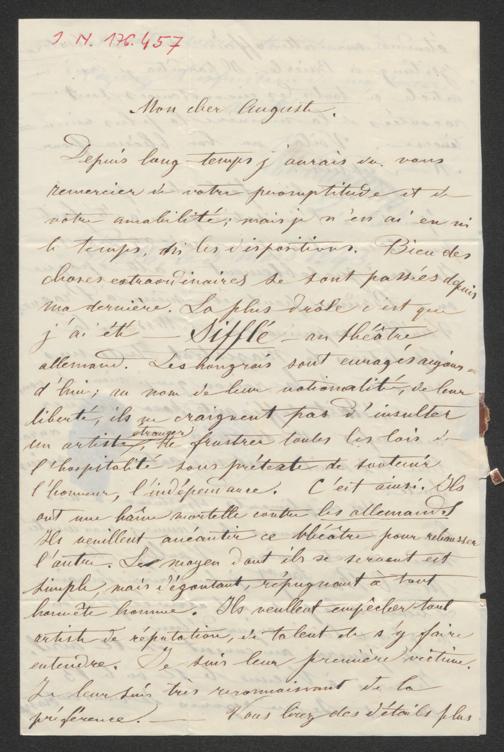 J. N. 176.457
Mon cher Auguste.
Depuis long-temps j'aurais du vous
remercier de votre promptitude et de
votre amabilité; mais je n'en ai eu ni
le temps, ni les dispositions. Bien des
choses extraordinaires se sont passées depuis
ma dernière. La plus drôle c'est que
j'ai été — Sifflé — au théâtre
allemand. Les hongrois sont enragés aujour
d'hui; au nom de leur nationalité, de leur
liberté, ils ne craignent pas d'insulter
un artiste étranger de frustrer toutes les lois de
l'hospitalité sous prétexte de soutenir
l'honneur, l'indépendance. C'est ainsi. Ils
ont une haîne mortelle contre les allemands
Ils veuillent anéantir ce théâtre pour rehausser
l'autre. Le moyen dont ils se servent est
simple, mais dégoutant, répugnant à tout
honnête homme. Ils veullent empêcher tout
artiste de réputation, de talent de s'y faire
entendre. Je suis leur première victime.
Je leur suis très reconnaissant de la
préférence. — Vous lirez des détails plus